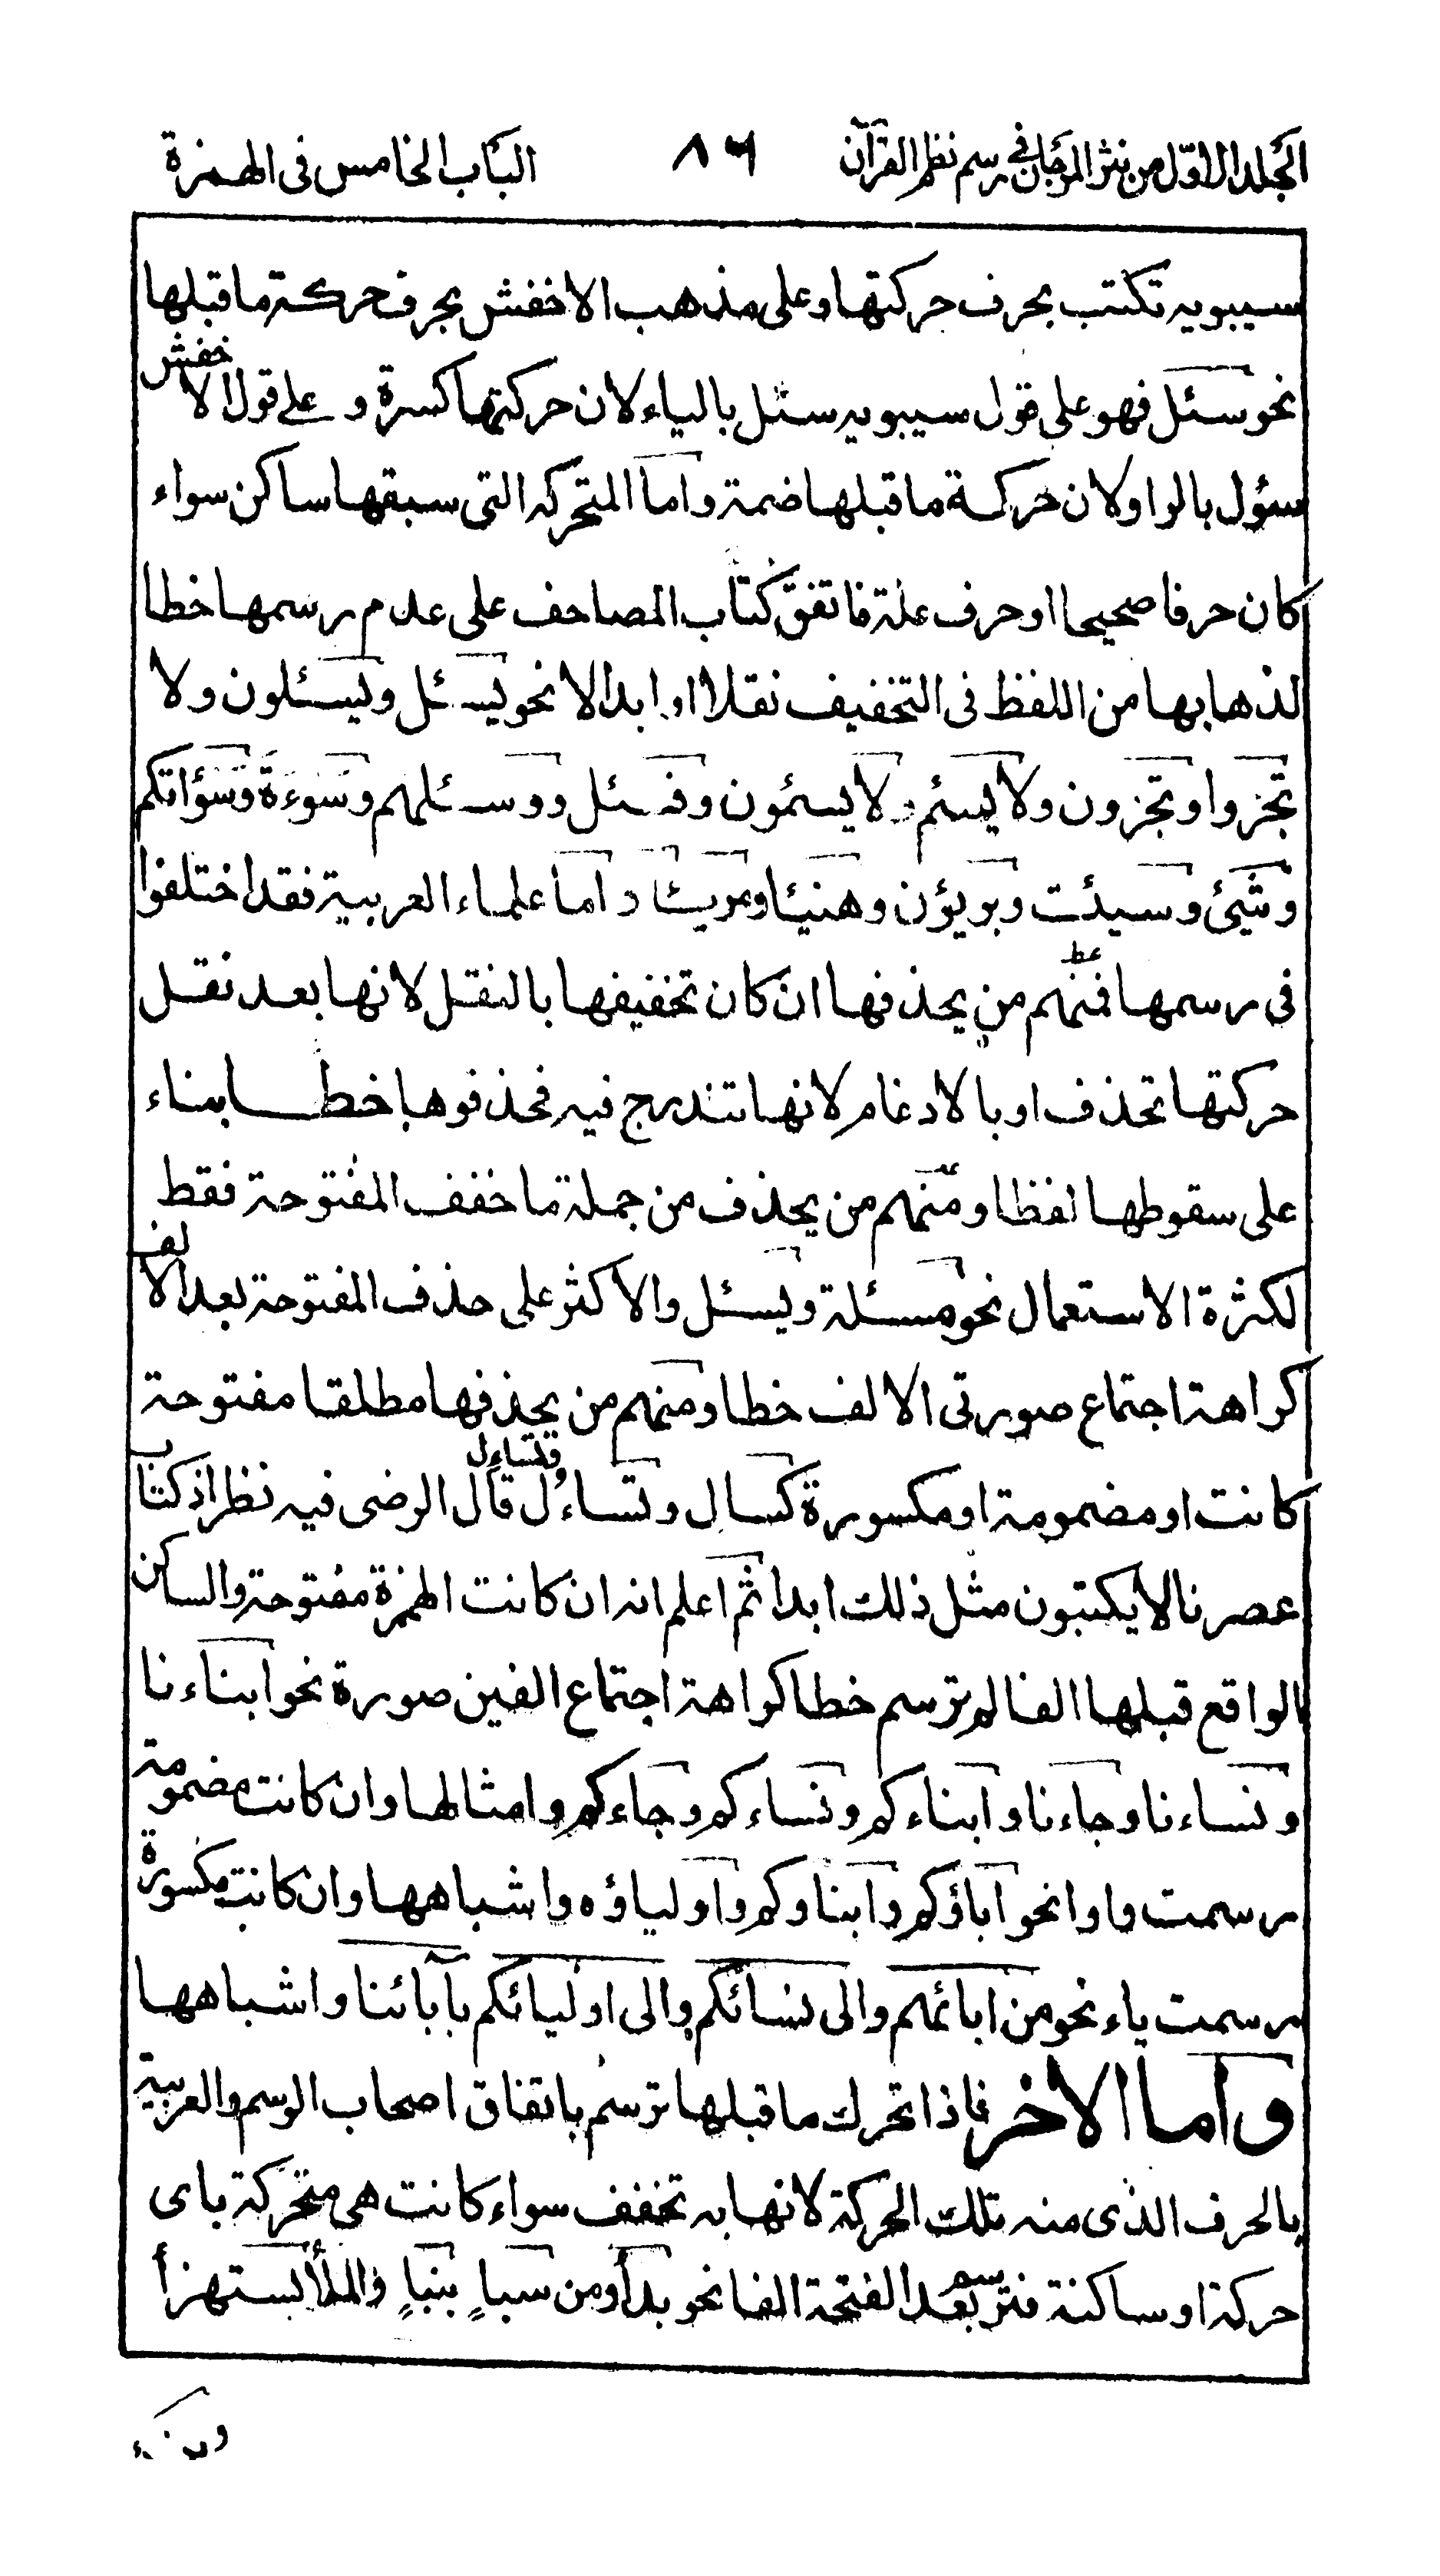 المجلد الاول من نثر المرجان في رسم نظم القرآن
٨٦
الباب الخامس فى الهمزة
سيبويه تكتب بحرف حركتها وعلى مذهب الاخفش بحرف حركة ما قبلها
نحو سئل فهو على قول سيبويه سئل بالياء لان حركتها كسرة و على قول الاخفش
سؤل بالواو لان حركة ما قبلها ضمة واما المتحركه التى سبقها ساكن سواء
كان حرفا صحيحا او حرف علة فاتفق كتاب المصاحف على عدم رسمها خطا
لذهابها من اللفظ فى التخفيف نقلا او ابدالا نحو يسئل ويسئلون ولا
تجزوا وتجزون ولا يسئم ولا يسئمون وفسئل ووسئلهم وسوءة وسؤاتكم
وشيئ وسيئت وبويؤن وهنيئا ومريئا واما علماء العربية فقد اختلفوا
فى رسمها فمنهم من يحذفها ان كان تخفيفها بالنقل لانها بعد نقل
حركتها تحذف او بالادغام لانها تندرج فيه فحذفوها خطا بناء
على سقوطها لفظا ومنهم من يحذف من جملة ما خفف المفتوحة فقط
لكثرة الاستعمال نحو مسئلة ويسئل والاكثر على حذف المفتوحة بعد الالف
كراهة اجتماع صورتى الالف خطا ومنهم من يحذفها مطلقا مفتوحة
كانت او مضمومة او مكسورة كسال وتساءل وتساءل قال الرضى فيه نظر اذ كتاب
عصرنا لا يكتبون مثل ذلك ابدا ثم اعلم انه ان كانت الهمزة مفتوحة والساكن
الواقع قبلها الفا لم ترسم خطا كراهة اجتماع الفين صورة نحو ابناءنا
ونساءنا وجاءنا وابناءكم ونساءكم وجاءكم وامثالها وان كانت مضمومة
رسمت واوا نحو اباؤكم وابناوكم واولياؤه واشباهها وان كانت مكسورة
رسمت ياء نحو من ابائهم والى نسائكم والى اوليائكم بآبائنا واشباهها
واما الاخر فاذا تحرك ما قبلها ترسم باتفاق اصحاب الرسم والعربية
بالحرف الذى منه تلك الحركة لانها به تخفف سواء كانت هى متحركة باى
حركة او ساكنة فترسم بعد الفتحة الفا نحو بدأ ومن سبإ بنبإ والملأ يستهزأ